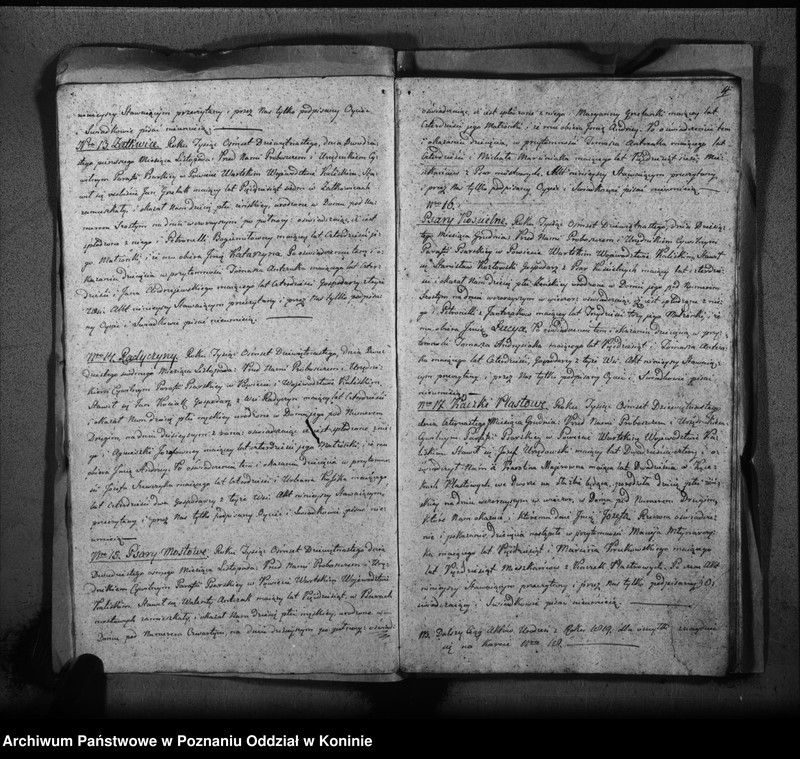 niniejszy Stawaiącym przeczytany i przez Nas tylko podpisany Oycie
i Swiadkowie pisać nieumieią
Nro 13 Roku Tysiąc Osmset Dziewiętnastego, dnia Dwudzie-
stego pierwszego Miesiąca Listopada Przed Nami Proboszczem i Urzędnikiem Cy-
wilnym Parafii Psarskiy w Powiecie Wartskim Woiewództwie Kaliskim, Sta-
wił się Jan lat Pięćdziesiąt siedm w
zamieszkały, i okazał Nam dziecię płci żeńskiey, urodzone w Domu pod Nu-
merem Szostym na dniu wczorayszym po południu oświadczaiąc, iż iest
spłodzone z niego i Petronelli maiącey lat Czterdzieści je-
go Małżonki, i iż mu obiera Jmię Katarzyna Po oświadczeniu tem i o-
kazaniu dziecięcia w przytomności Tomasza Antczaka maiącego lat czter-
dzieści i Jana Andrzejewskiego maiącego lat Czterdzieści Gospodarzy z teyże
Wsi. Akt niniejszy Stawaiącym przeczytany i przez Nas tylko podpisa-
ny Oycie i Swiadkowie pisać nieumieią.
Nro 14. Radyczyny. Roku Tysiąc Osmset Dziewiętnastego, dnia Dwu-
dziestego siodmego Miesiąca Listopada. Przed Nami Proboszczem i Urzędni-
kiem Cywilnym Parafii Psarskiey w Powiecie i Woiewództwie Kaliskim,
Stawił się Jan Gospodarz z Wsi Radyczyn maiący lat Czterdzieści
i okazał Nam dziecię płci męskiey urodzone w Domu jego pod Numerem
Drugim, na dniu dzisieyszym z rana oświadczaiąc iż iest spłodzone z nie-
go i Agnieszki maiącey lat czterdzieści jego Małżonki, i iż mu
obiera Jmię Andrzey. Po oświadczeniu tem i okazaniu dziecięcia w przytomno-
ści Jozefa maiącego lat Czterdzieści i Urbana maiącego
lat Czterdzieści dwa Gospodarzy z teyże Wsi Akt niniejszy Stawaiącym
przeczytany i przez Nas tylko podpisany Oycie i Swiadkowie pisać nie-
umieią
Nro 15. Psary Mostowe. Roku Tysiąc Osmset Dziewiętnastego dnia
Dwudziestego osmego Miesiąca Listopada. Przed Nami Proboszczem i Urzę-
dnikiem Cywilnym Parafii Psarskiey w Powiecie Wartskim, Woiewództwie
Kaliskim Stawił się Walenty Antczak maiący lat Pięćdziesiąt w Psarach
mostowych zamieszkały, i okazał Nam dziecię płci męskiey, urodzone w
Domu pod Numerem Czwartym, na dniu dzisieyszym po południu
oświadczaiąc, iż iest spłodzone z niego i Maryanny maiącey lat
Czterdzieści jego Małżonki i iż mu obiera Jmię Andrzey. Po oświadczeniu tem
i okazaniu dziecięcia, w przytomności Tomasza Antczaka maiącego lat
Czterdzieści i Michała maiącego lat Pięćdziesiąt
z Psar mostowych. Akt niniejszy Stawaiącym przeczytany,
i przez Nas tylko podpisany Oycie i Swiadkowie pisać nieumieią
Nro 16.
Psary Kościelne, Roku Tysiąc Osmset Dziewiętnastego, dnia Dziesią-
tego Miesiąca Grudnia. Przed Nami Proboszczem i Urzędnikiem Cywilnym
Parafii Psarskiey w Powiecie Wartskim Woiewództwie Kaliskim Stawił
się Stanisław Kozłowski Gospodarz z Psar Kościelnych maiący lat czterdzie-
ści, i okazał Nam dziecię płci żeńskiey urodzone w Domu jego pod Numerem
Szostym na dniu wczorayszym w wieczor oświadczaiąc iż iest spłodzone z nie-
go i Petronelli z maiącey lat Trzydzieści trzy jego Małżonki, i iż
mu obiera Jmię Łucya. Po oświadczeniu tem i okazaniu dziecięcia w przy-
tomności Tomasza maiącego lat Pięćdziesiąt, i Tomasza Antcza-
ka maiącego lat Czterdzieści, Gospodarzy z teyże Wsi. Akt niniejszy Stawaią-
cym przeczytany, i przez Nas tylko podpisany Oycie i Swiadkowie pisać
nieumieią
Nro 17. Kaczki Plastowe, Roku Tysiąc Osmset Dziewiętnastego
dnia Czternastego Miesiąca Grudnia. Przed Nami Proboszczem i Urzędnikiem
Cywilnym Parafii Psarskiey w Powiecie Wartskim Woiewództwie Ka-
liskim Stawił się Jozef maiący lat Dwadzieścia cztery, i o-
świadczył Nam iż Karolina maiąca lat Dwadzieścia w Kacz-
kach Plastowych we Dworze na służbie będąca, urodziła dziecię płci
skiey na dniu wczorayszym w wieczor, w Domu pod Numerem Drugim,
które Nam okazał i któremu dał Jmię Jozefa. Ktorego oświadcze-
nie i pokazanie dziecięcia nastąpiło w przytomności Macieja
maiącego lat Pięćdziesiąt, i Marcina maiącego
lat Pięćdziesiąt z Kaczek Plastowych. Poczem Akt
niniejszy Stawaiącym przeczytany i przez Nas tylko podpisany O-
świadczaiący i Swiadkowie pisać nieumieią.
NB. Dalszy Ciąg Aktów Urodzeń z Roku 1819, dla omyłki znayduie
się na karcie Nro
Archiwum Państwowe w Poznaniu Oddział w Koninie